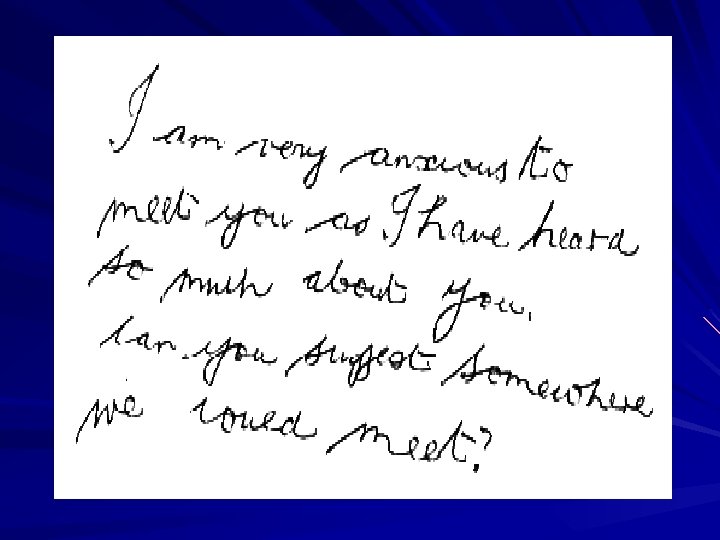 I am very anxious to
meet you as I have heard
so much about you.
Can you suggest somewhere
we could meet?